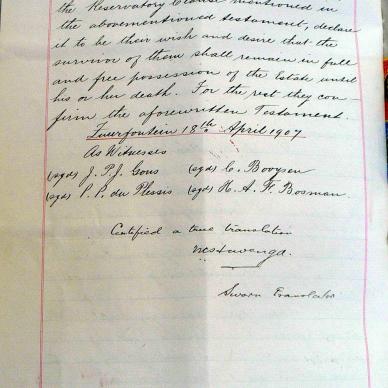 the Reservatory Clause mentioned in
the abovementioned testament, declare
it to be their wish and desire that the
survivor of them shall remain in full
and free possession of the Estate until
his or her death. For the rest they con-
firm the aforewritten Testament.
18th April 1907
As Witnesses
(sgd) J. P. J. Gous (sgd) C. Booysen
(sgd) P. P. du Plessis (sgd) H. A. F. Bosman
Certified a true translation
Sworn Translator